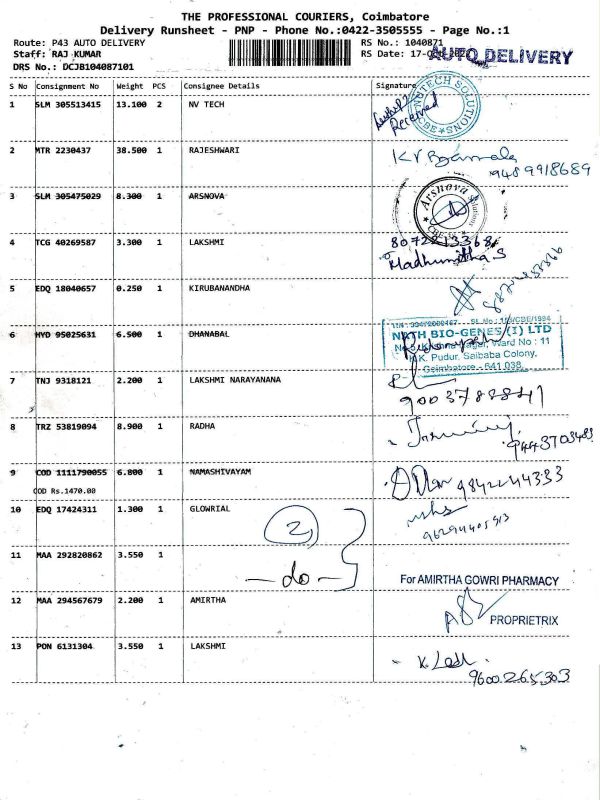 THE PROFESSIONAL COURIERS, Coimbatore
Delivery Runsheet - PNP - Phone No.:0422-3505555 - Page No.:1
Route: P43 AUTO DELIVERY RS No.: 1040871
Staff: RAJ KUMAR RS Date: 17-Oct-202 AUTO DELIVERY
DRS No.: DCJB104087101
S No Consignment No Weight PCS Consignee Details Signature
1 SLM 305513415 13.100 2 NV TECH
Received
NUTECH SOLUTIONS CBE
2 MTR 2230437 38.500 1 RAJESHWARI
9489918689
3 SLM 305475029 8.300 1 ARSNOVA
Arsnova Solutions
4 TCG 40269587 3.300 1 LAKSHMI 8072213368
Madhumitha.S
5 EDQ 18040657 0.250 1 KIRUBANANDHA
6 HYD 95025631 6.500 1 DHANABAL
NATH BIO-GENES (I) LTD
Krishna Nagar, Ward No : 11
K.K. Pudur, Saibaba Colony,
Coimbatore - 641 038
7 TNJ 9318121 2.200 1 LAKSHMI NARAYANANA
9003788841
8 TRZ 53819094 8.900 1 RADHA
9443703483
9 COD 1111790055 6.800 1 NAMASHIVAYAM 9842244333
COD Rs.1470.00
10 EDQ 17424311 1.300 1 GLOWRIAL
2
11 MAA 292820862 3.550 1
- do -
For AMIRTHA GOWRI PHARMACY
12 MAA 294567679 2.200 1 AMIRTHA
PROPRIETRIX
13 PON 6131304 3.550 1 LAKSHMI
9600265303